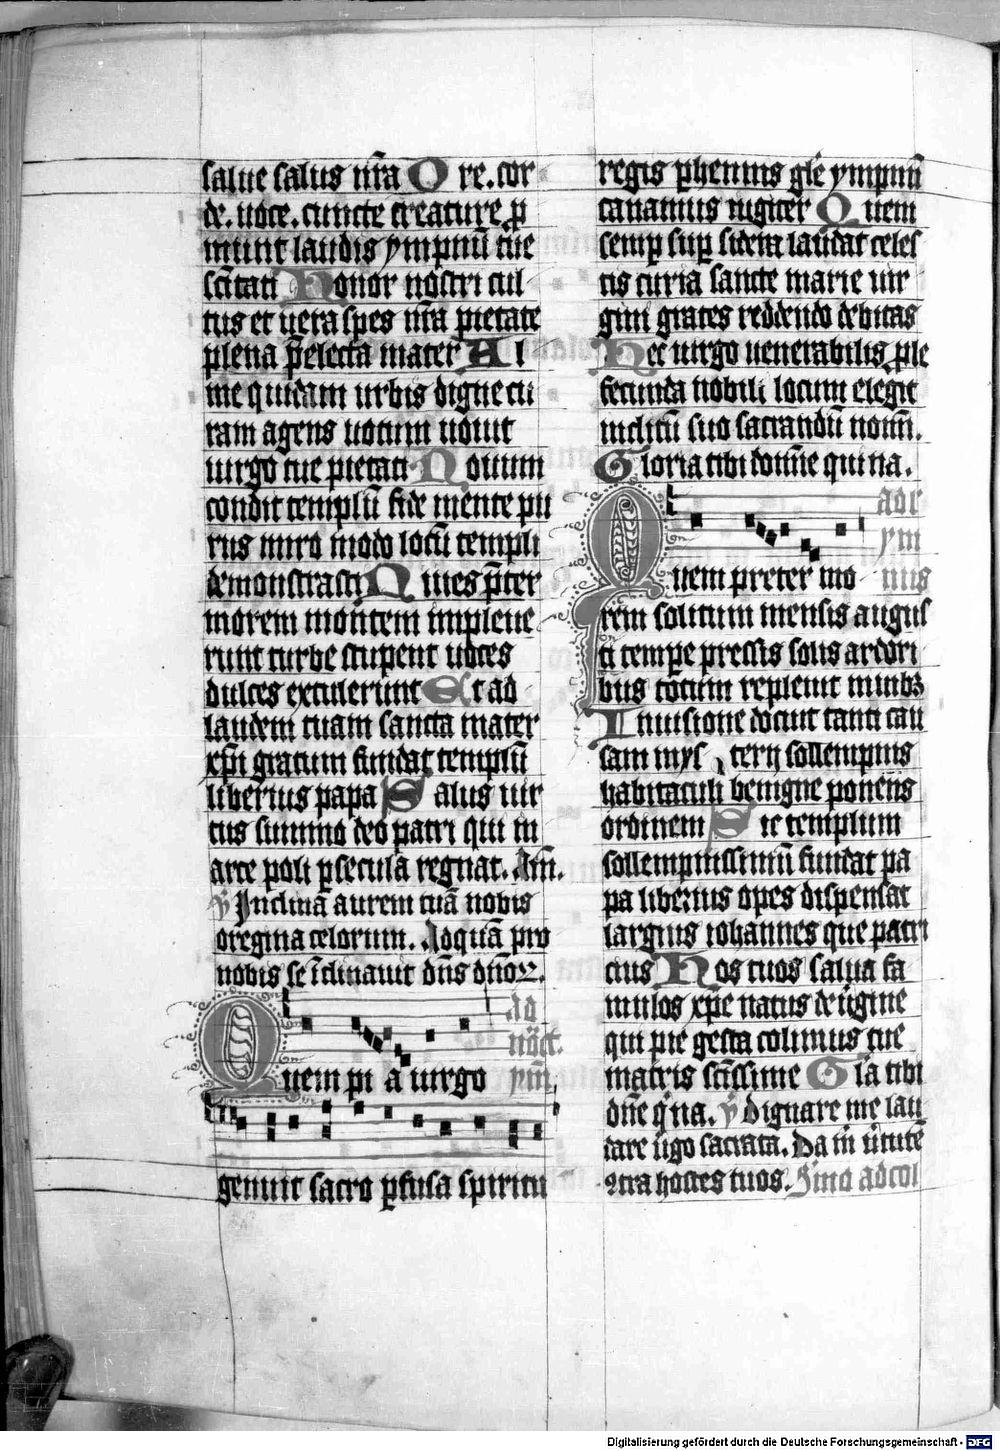 salue salus nr̄a O re. cor
de. uoce. cuncte creature p
munt laudis ympnū tue
sc̄itati Honor nostri cul
tus et uera spes nr̄a pietate
plena p̄electa mater Al
me quidam urbis digne cu
ram agens uotum uouit
uirgo tue pietati Nouum
condit templū fide mente pu
rus miro modo locū templi
demonstrasti Niues p̄ter
morem montem impleue
runt turbe stupent uoces
dulces extulerunt Et ad
laudem tuam sancta mater
xp̄i gratum fundat templū
liberius papa Salus uir
tus summo deo patri qui in
arce poli p secula regnat. Am̄.
ỹ Inclina aurem tuā nobis
o regina celorum. Ad quā pro
nobis se īclinauit dn̄s dn̄oꝝ.
ad
noct.
Quem pi a uirgo ym̄.
genuit sacro pfusa spiritu
regis phennis gle ympnū
canamus iugiter Quem
semp sup sidera laudat celes
tis curia sancte marie uir
gini grates reddendo debitas
Hec uirgo uenerabilis ple
fecunda nobili locum elegit
inclitū suo sacrandū nom̄.
Gloria tibi domne qui na.
ad l
ym
Quem preter mo nus
rem solitum mensis augus
ti tempe pressis solis ardori
bus totum repleuit nimbꝫ
In uisione docuit tanti cau
sam mys terij sollempnis
habitaculi benigne ponens
ordinem Sic templum
sollempnissimū fundat pa
pa liberius opes dispensat
largius iohannes que patri
cius Nos tuos salua fa
mulos xpē natus de ūgine
qui pie gesta colimus tue
matris sc̄issime Gl̄a tibi
dn̄e q̄ na. ỹ Dignare me lau
dare ūgo sacrata. Da m̄ ūtutē
ꝯtra hostes tuos. ad col